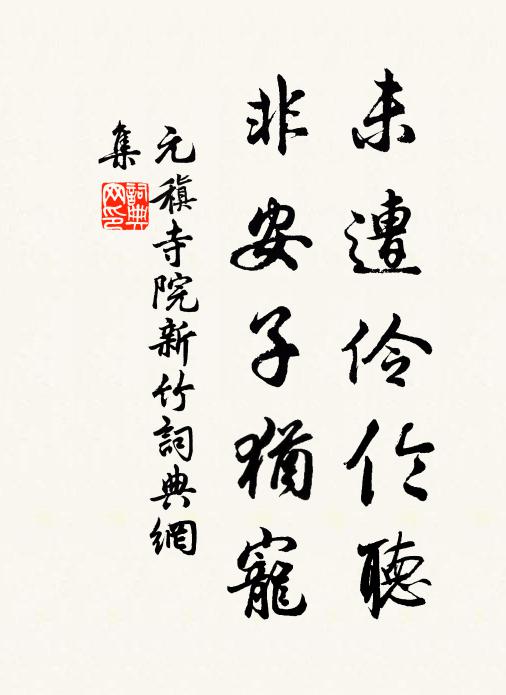 未遭伶伦聽
非安子猶寵
元稹寺院新竹詞典網
集
詞典
网印